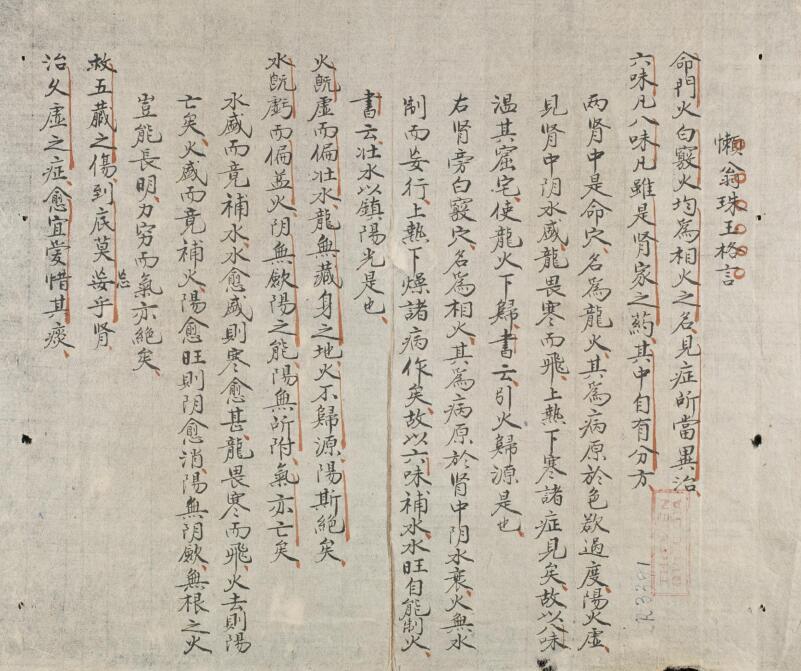 懶翁珠玉格言
命門火白竅火均為相火之名見症所當異治
六味凡八味凡雖是肾家之葯其中自有分方
两肾中是命穴名為龍火其為病原於色欲過度陽火虛
見肾中阴水盛龍畏寒而飛上熱下寒諸症見矣故以八味
温其窟宅使龍火下歸書云引火歸源是也
右肾旁白竅穴名為相火其為病原於肾中阴水衰火無水
制而妄行上熱下燥諸病作矣故以六味補水水旺自能制火
書云壮水以鎮陽光是也
火既虛而偏壮水龍無藏身之地火不歸源陽斯絕矣
水既虧而偏益火阴無歛陽之能陽無所附氣亦亡矣
水盛而竟補水水愈盛則寒愈甚龍畏寒而飛火去則陽
亡矣火盛而竟補火陽愈旺則阴愈消陽無阴歛無根之火
豈能長明力穷而氣亦絕矣
救五藏之傷到底莫妄乎肾
忘
治久虛之症愈宜爱惜其痰